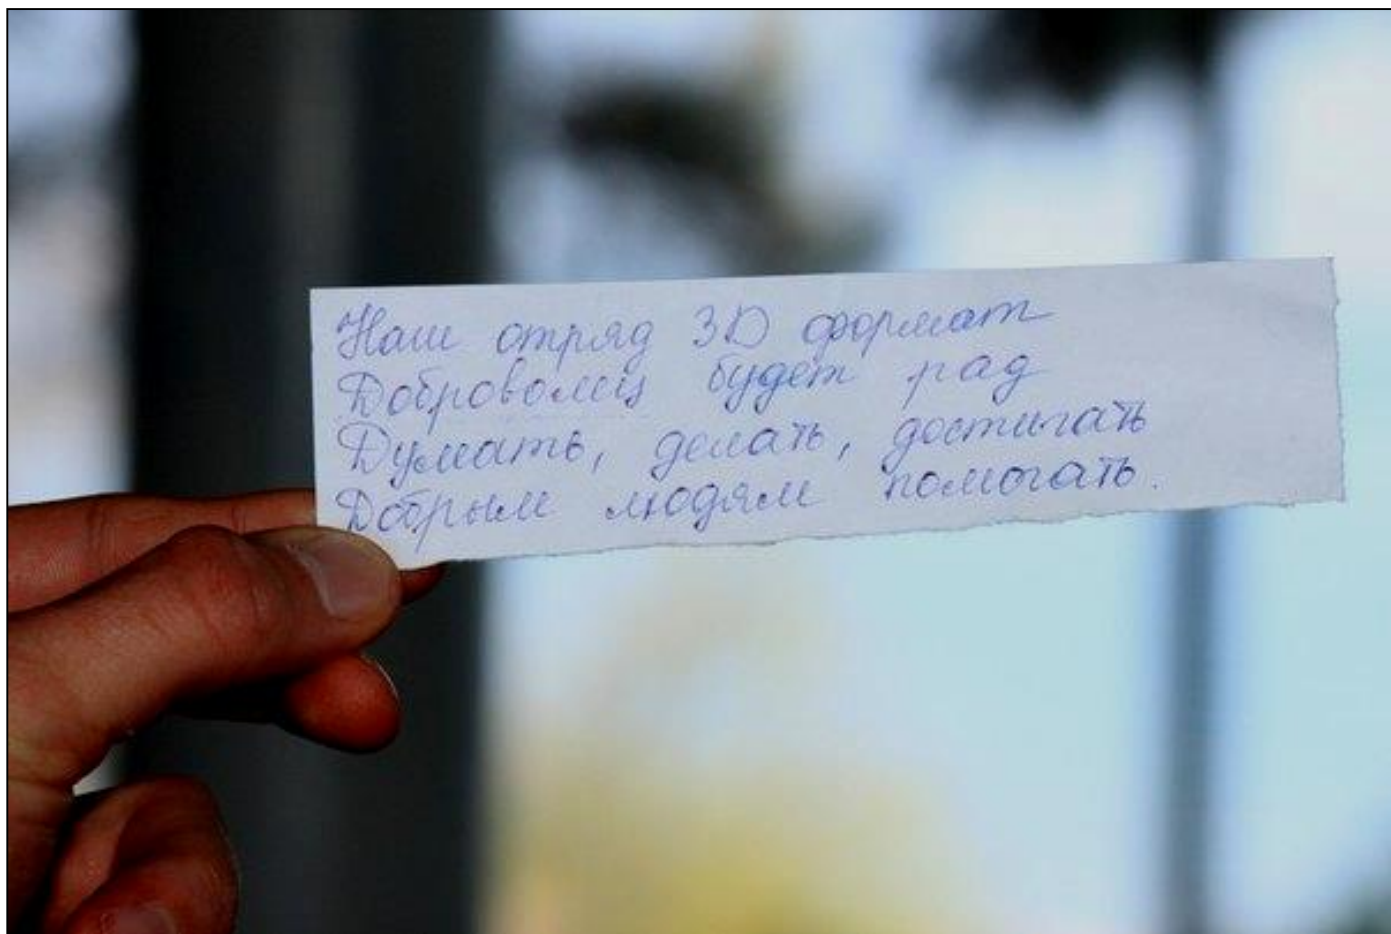 Наш отряд 3D формат
Доброволец будет рад
Думать, делать, достигать
Добрым людям помогать.